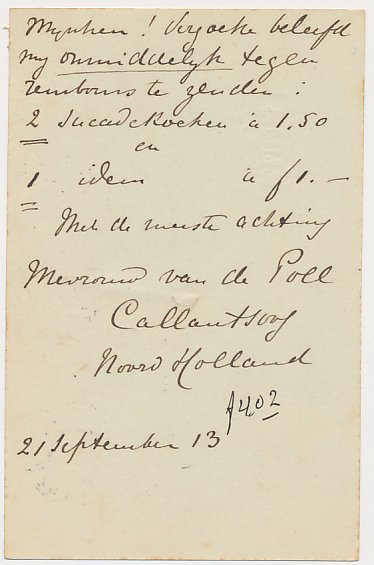 Mynheer! Verzoeke beleefd
my onmiddelyk tegen
rembours te zenden:
2 Succadekoeken à 1.50
en
1 idem à f 1.—
Met de meeste achting
Mevrouw van de Poll
Callantsoog
Noord Holland
A402
21 September 13